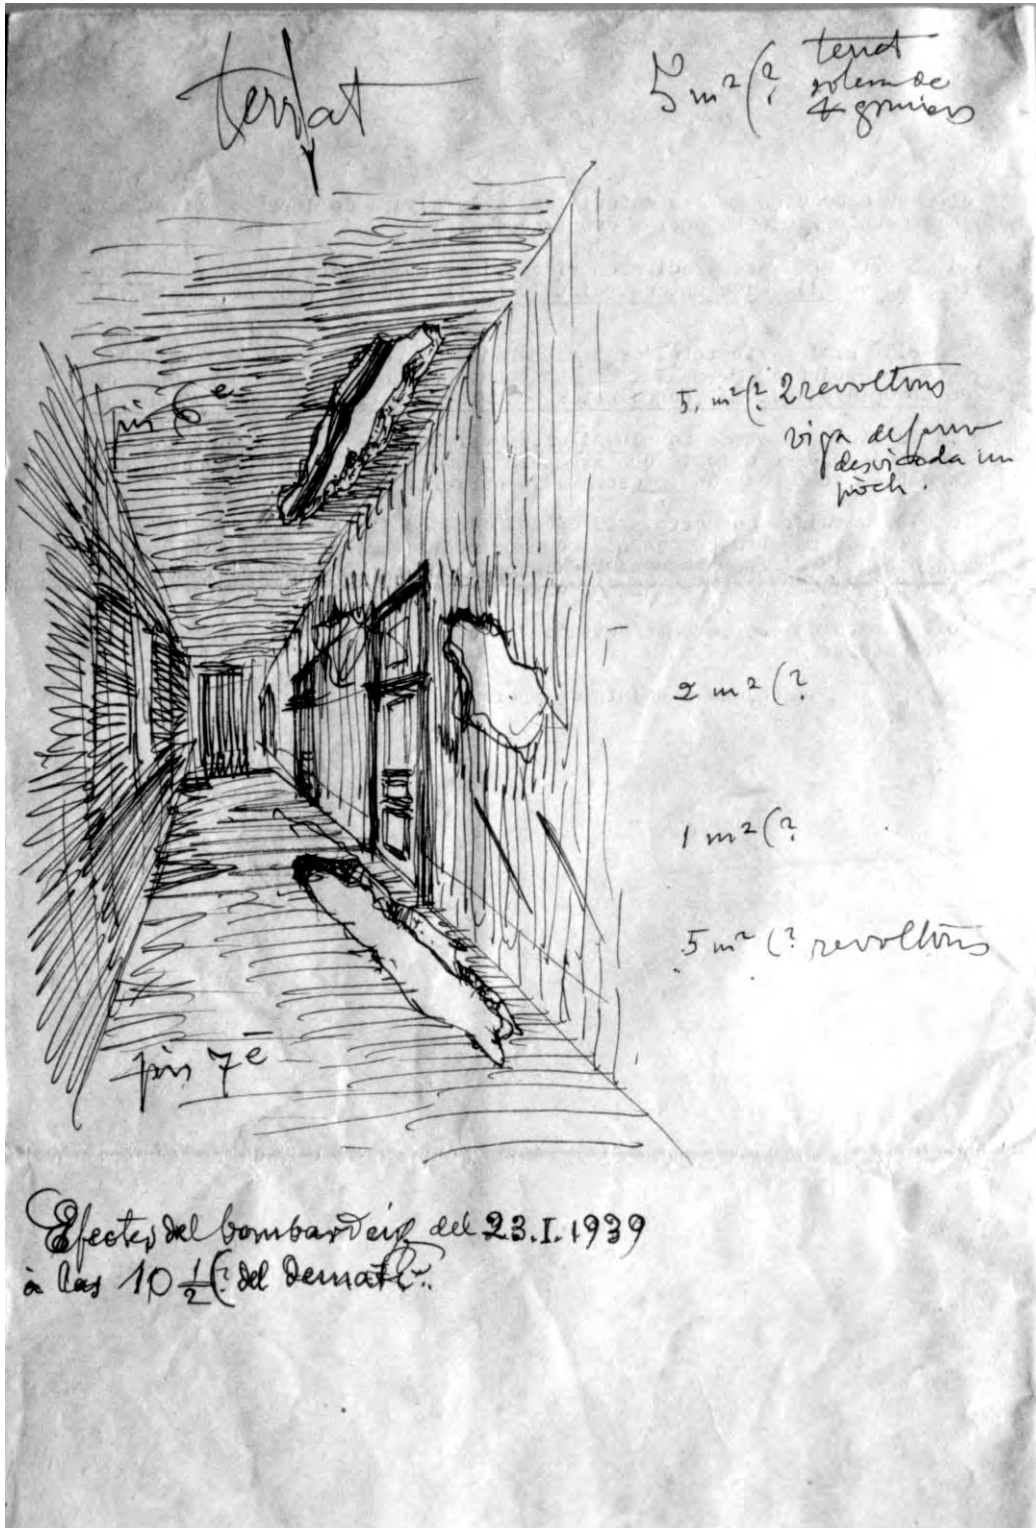 terrat
5 m² (? terrat
solera de
4 gruixos
pis 6e
5. m² (? 2 revoltons
viga de ferro
desviada un
poch.
2 m² (?
1 m² (?
5 m² (? revoltons
pis 7e
Efectes del bombardeig del 23.I.1939
à las 10 1/2 (? del dematí